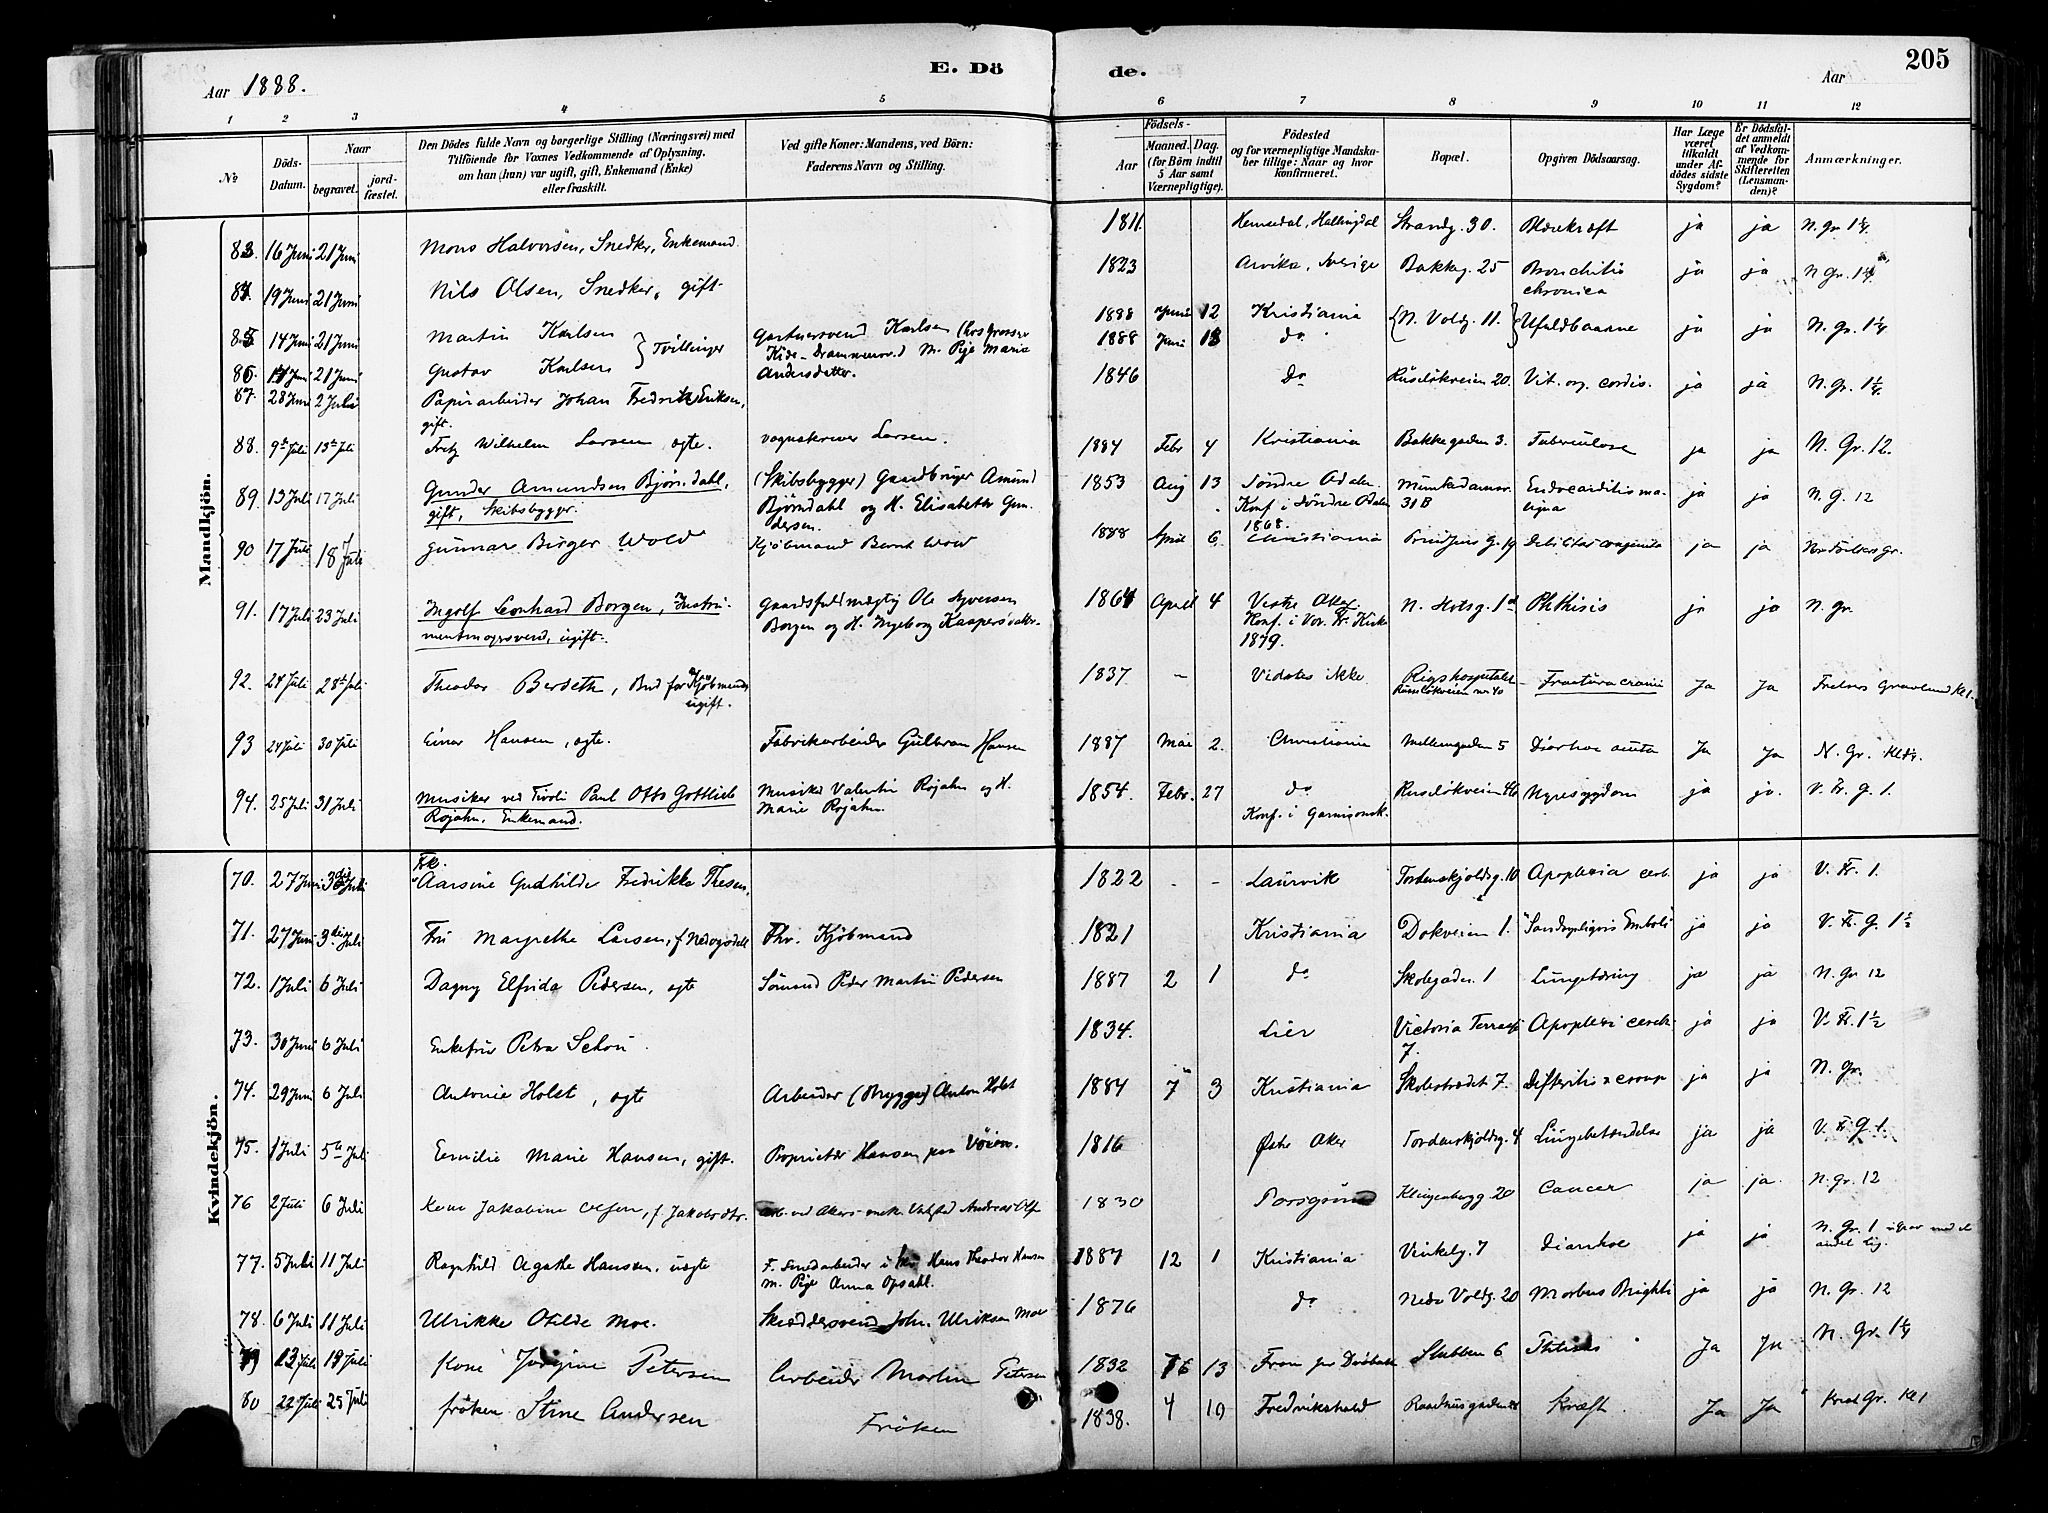 205
E. Dö de.
Aar 1888. Aar
1 2 3 4 5 6 7 8 9 10 11 12
№
Döds-Datum.
Naar
begravet. jordfæstet.
Den Dödes fulde Navn og borgerlige Stilling (Næringsvei) med
Tilföiende for Voxnes Vedkommende af Oplysning,
om han (hun) var ugift, gift, Enkemand (Enke)
eller fraskilt.
Ved gifte Koner: Mandens, ved Börn:
Faderens Navn og Stilling.
Födsels-
Aar
Maaned. Dag.
(for Börn indtil
5 Aar samt
Værnepligtige).
Födested
og for værnepligtige Mandskaber tillige: Naar og hvor
konfirmeret.
Bopæl.
Opgiven Dödsaarsag.
Har Læge været tilkaldt under Afdödes sidste Sygdom?
Er Dödsfaldet anmeldt af Vedkommende for Skifteretten (Lensmanden)?
Anmærkninger.
Mandkjön.
83. 16 Juni 21 Juni Mons Halvorsen, Snedker, Enkemand. 1811 Hemsedal, Hallingdal Strandg. 30. ja ja N. gr 1¼
84. 19 Juni 21 Juni Nils Olsen, Snedker, gift 1823 Arvika, Sverige Bakkeg. 25 Bronchitis chronica ja ja N Gr. 1¼
85 14 Juni 21 Juni Martin Karlsen } Tvillinger Gartnersvend Karlsen 1888 Juni 12 Kristiania { N. Voldg. 11. } Ufuldbaarne ja ja N. Gr. 1¼
86 21 Juni Gustav Karlsen m. Pige Maria Andersdatter. 1888 Juni do
87. 28 Juni 2 Juli Papirarbeider Johan Fredrik Eriksen, gift. 1846 Do Ruseløkveien 20. Vit. org. cordis. ja ja N. Gr. 1¼
88. 9de Juli 13de Juli Fritz Wilhelm Larsen ægte. Vognskriver Larsen. 1884 Febr 4 Kristiania Bakkegaden 3. Tuberculose ja ja N. Gr. 12.
89. 13 Juli 17 Juli Gunder Amundsen Bjørndahl, gift, Skibsbygger. (Skibsbygger) Gaardbruger Amund Bjørndahl og H. Elisabeth Gundersen. 1853 Aug 13 Søndre Odalen Konf. i Søndre Odalen 1868. Munkedamsv. 31 B Endocarditis maligna ja ja N. G. 12
90 17 Juli 18 Juli Gunnar Birger Wold Kjøbmand Bernt Wold 1888 April 6 Christiania Prindsens G. 19 Debilitas congenita ja ja
91. 17 Juli 23 Juli Ingolf Leonhard Borgen, Instrumentmagersvend, ugift. Gaardsfuldmægtig Ole Syversen Borgen og H. Ingeborg Kaspersdatter. 1864 April 4 Vestre Aker. Konf. i Vor Fr. Kirke 1879. Phthisis ja ja N. gr.
92. 24 Juli 28de Juli Theodor Berseth, Bud for Kjøbmænd ugift. 1837 – Vidstes ikke Rigshospitalet Ruseløkveien nr 40 Fractura cranii Ja Ja
93 24 Juli 30 Juli Einar Hansen, ægte. Fabrikarbeider Gulbran Hansen 1887 Mai 2. Christiania Mellemgaden 5 Diarhoe acuta Ja Ja N. Gr.
94. 25 Juli 31 Juli Musiker ved Tivoli Paul Otto Gottlieb Rojahn. Enkemand. Musiker Valentin Rojahn og H. Marie Rojahn. 1854. Febr. 27 do Konf. i Garnisonsk. Ruseløkveien 46 Nyresygdom ja ja. V. Fr. G. 1.
Kvindekjön.
70. 27 Juni 3die Juli Frk. Aarsine Gudhilde Fredrikke Thesen, 1822 - - Laurvik Tordenskjoldsg. 10 Apoplexia cerb. ja ja V. Fr. 1.
71. 27 Juni 3die Juli Fru Margrethe Larsen, Fhv. Kjøbmand 1821 Kristiania Dokveien 1. "Sandsynligvis Emboli" ja ja V. Fr. G. 1½
72. 1 Juli 6 Juli Dagny Elfrida Pedersen, ægte Sömand Peder Martin Pedersen 1887 2 1 do Skolegaden 1 Lungetæring ja ja N. Gr 12
73. 30 Juni 6 Juli Enkefru Petra Schou. 1834. Lier Victoria Terrasse 7. Apoplexi cereb. ja ja V. Fr. 1½
74. 29 Juni 6 Juli Antonie Holst, ægte Arbeider (Brygge) Anton Holst 1884 7 3 Kristiania Skolestrædet 7. Difteritis croup ja ja N. Gr.
75. 1 Juli 5te Juli Emilie Marie Hansen, gift. Proprietær Hansen paa Vøien. 1816 Østre Aker Tordenskjoldsg. 4 Lungebetændelse ja ja V. Fr G 1.
76 2 Juli 6 Juli Kone Jakobine Olsen, f. Jakobsdtr. arb. ved Akers mek. Værksted Andreas Olsen 1830 Porsgrund Klingenbergg. 20 Cancer ja ja. N. gr. 12
77. 5 Juli 11 Juli Ragnhild Agathe Hanssen, uægte F. Smedarbeider Hans Theodor Hansen m. Pige Anna Opsahl. 1887 12 1 Kristiania Vinkelg. 7 Diarrhoe ja ja N. Gr. 1 i Grav med et andet Lig.
78. 6 Juli 11 Juli Ulrikke Otilde Moe. Skræddersvend John. Ulriksen Moe 1876 do Nedre Voldg. 20 Morbus Brightii ja ja N. Gr. 12
79 13 Juli 19 Juli Kone Jørgine Petersen Arbeider Martin Petersen 1832 6 13 Stubben 6 Ja Ja N. Gr. 1¼
80 22 Juli 25 Juli Frøken Stine Andersen Frøken 1838. 4 19 Fredrikshald Raadhusgaden Kræft Ja Ja